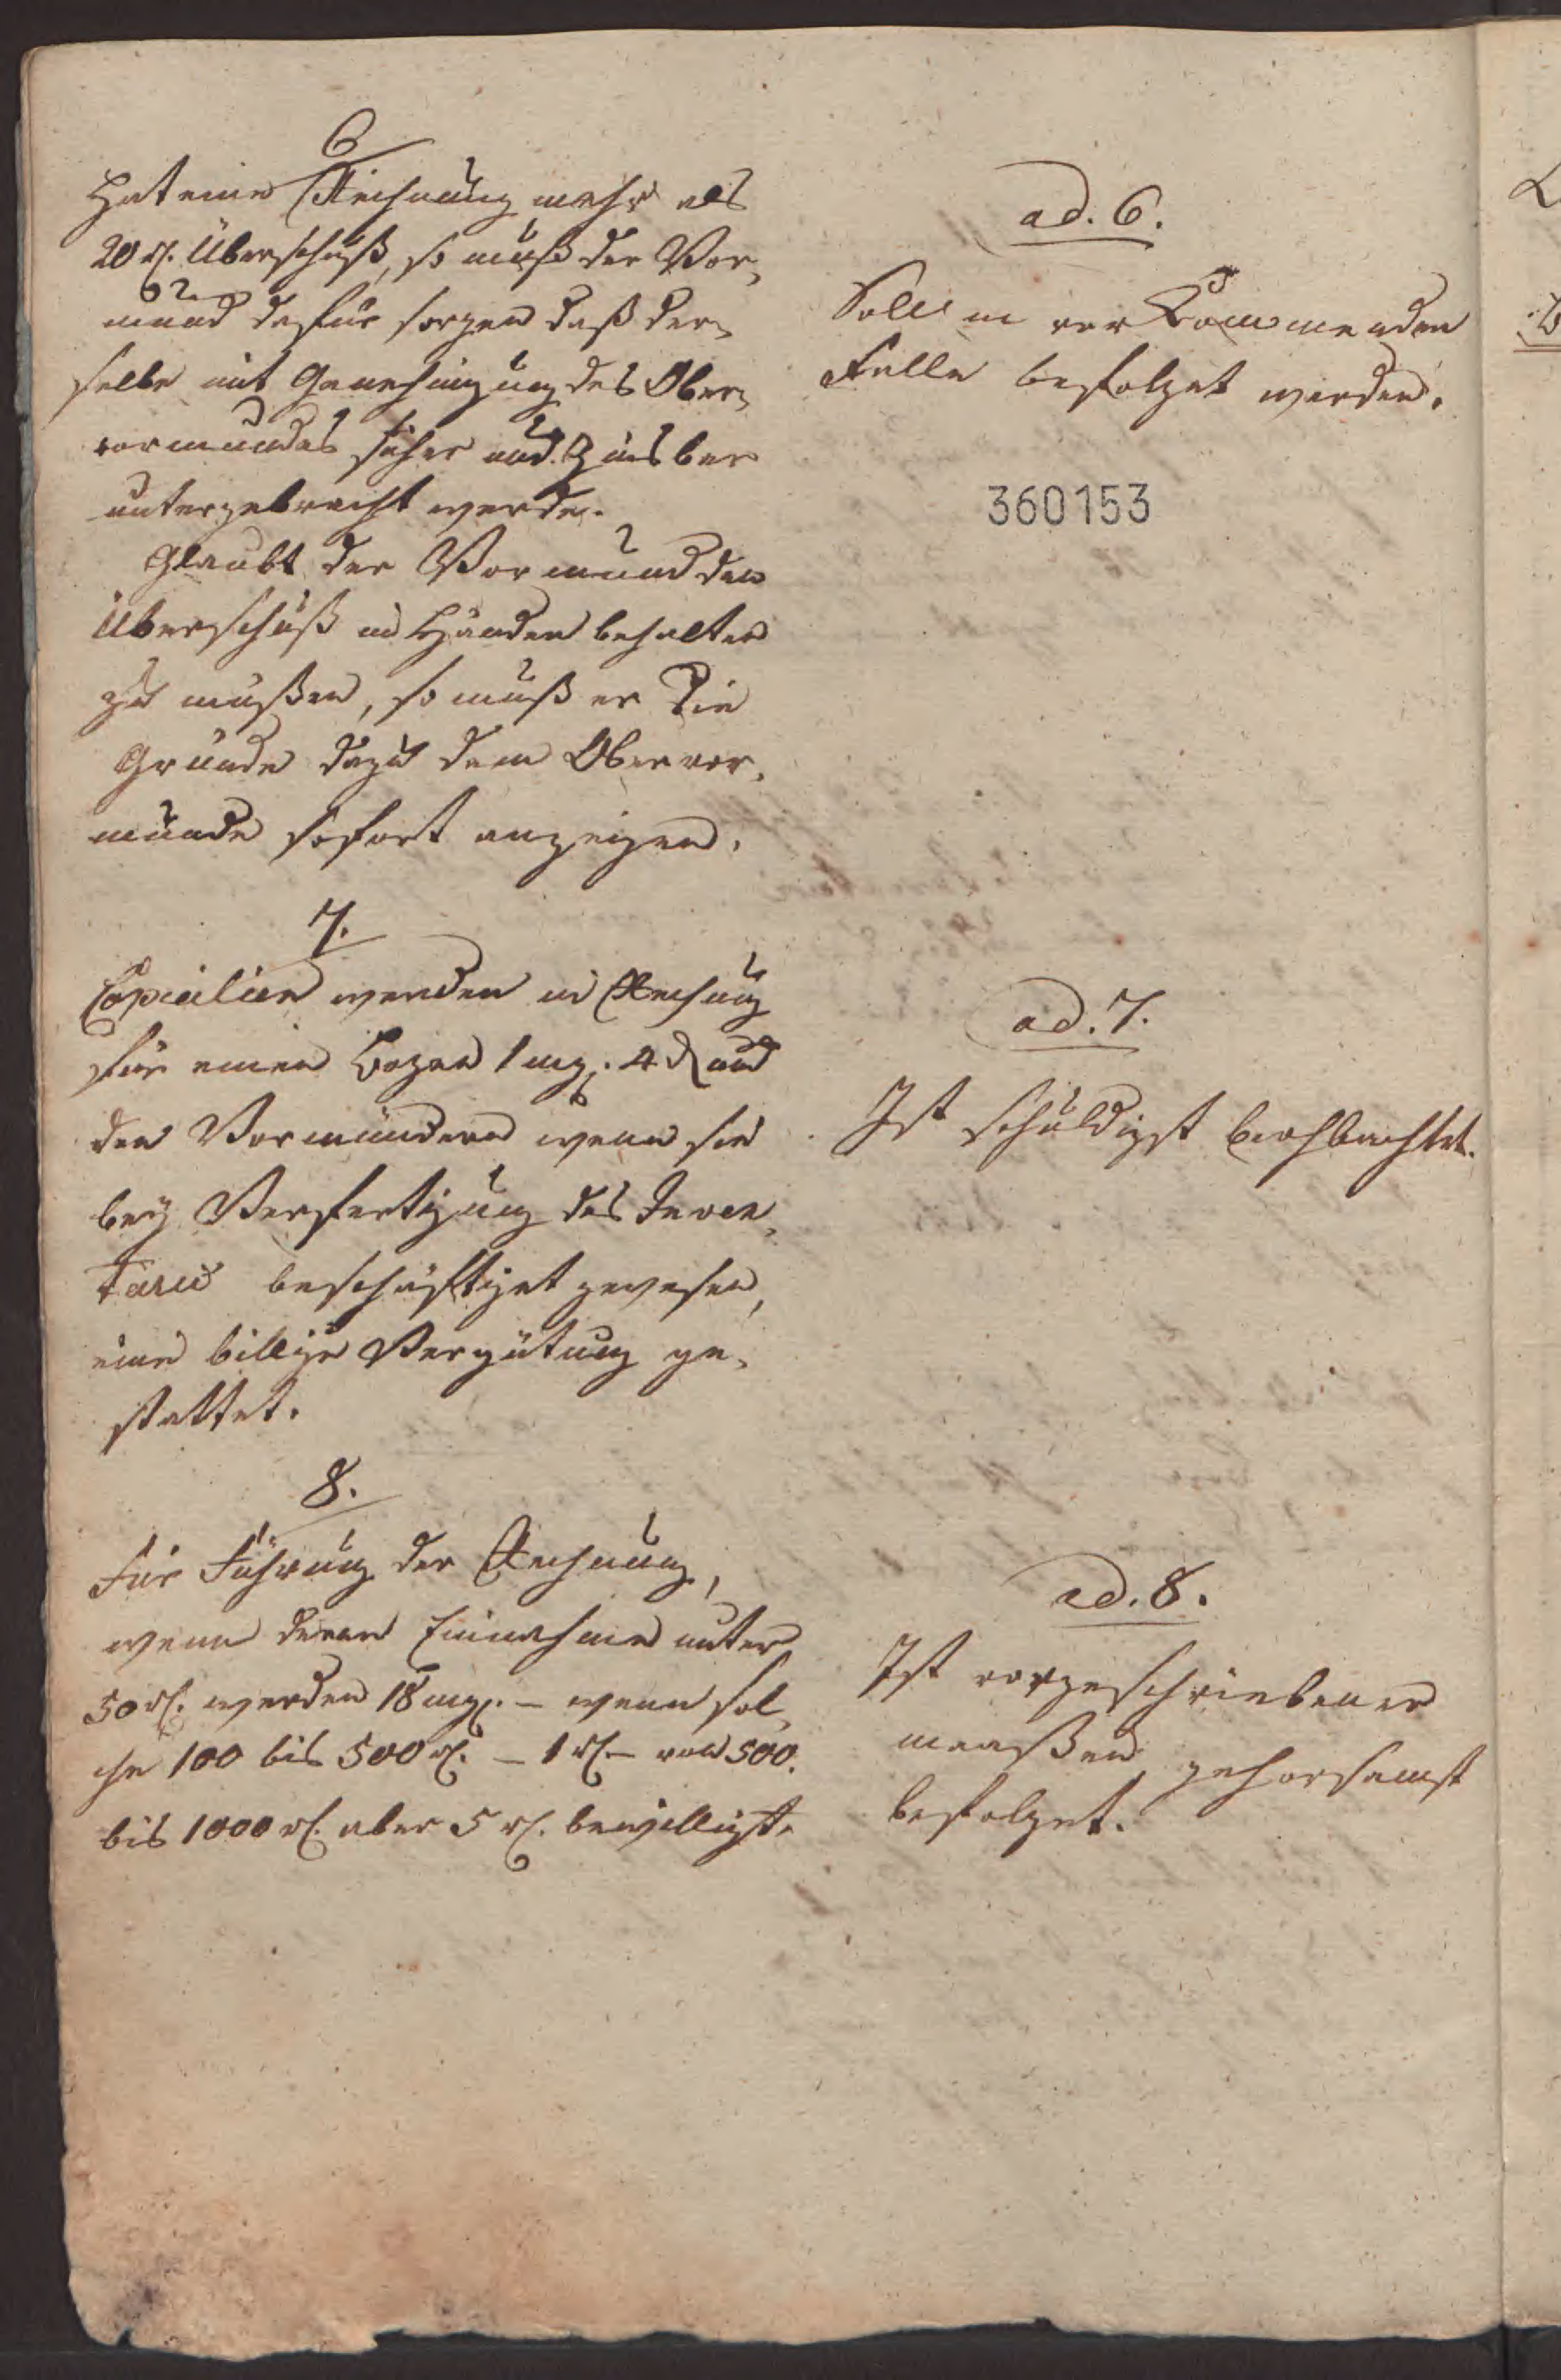 6
Hat eine Rechnung mehr als
20 rl. Überschuß, so muß der Vor-
mund dafür sorgen daß der-
selbe mit Genehmigung des Ober-
vormundes sicher und Zinsbar
untergebracht werde.
Glaubt der Vormund den
Überschuß in Händen behalten
zu müßen, so muß er die
Gründe dazu dem Obervor-
munde sofort anzeigen.
7.
Copialien werden in Rechnung
für einen Bogen 1 mg. 4 d und
den Vormündern wenn sie
bey Verfertigung des Inven-
tarii beschäftiget gewesen,
eine billige Vergütung ge-
stattet.
8.
Für Führung der Rechnung,
wenn deren Einnahme unter
50 rl. werden 18 mg. – wenn sol-
che 100 bis 500 rl. – 1 rl. – von 500.
bis 1000 rl. aber 5 rl. bewilligt.
ad. 6.
Soll in vorkommenden
Falle befolget werden.
360153
ad. 7.
Ist schuldigst beobachtet.
ad. 8.
Ist vorgeschriebener
maaßen gehorsamst
befolget.